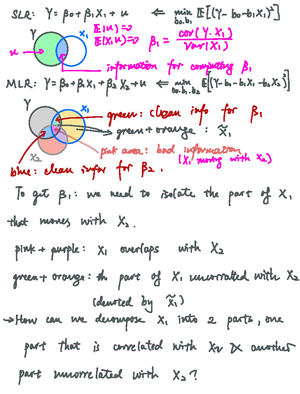 SLR: Y = β0 + β1 X1 + u ⇐ min b0.b1 E[(Y - b0 - b1X1)²]
E(u)=0
E(X1u)=0 β1 = cov(Y.X1) / var(X1)
Y X1
u
information for computing β1
MLR: Y = β0 + β1X1 + β2X2 + u ⇐ min b0.b1.b2 E[(Y - b0 - b1X1 - b2X2)²]
Y X1
green: clean info for β1
green + orange: X̃1
X2 pink area: bad information
(X1 moving with X2)
blue: clean infor for β2.
To get β1: we need to isolate the part of X1
that moves with X2.
pink + purple: X1 overlaps with X2
green + orange: the part of X1 uncorrelated with X2
(denoted by X̃1)
→ How can we decompose X1 into 2 parts, one
part that is correlated with X2 & another
part uncorrelated with X2?